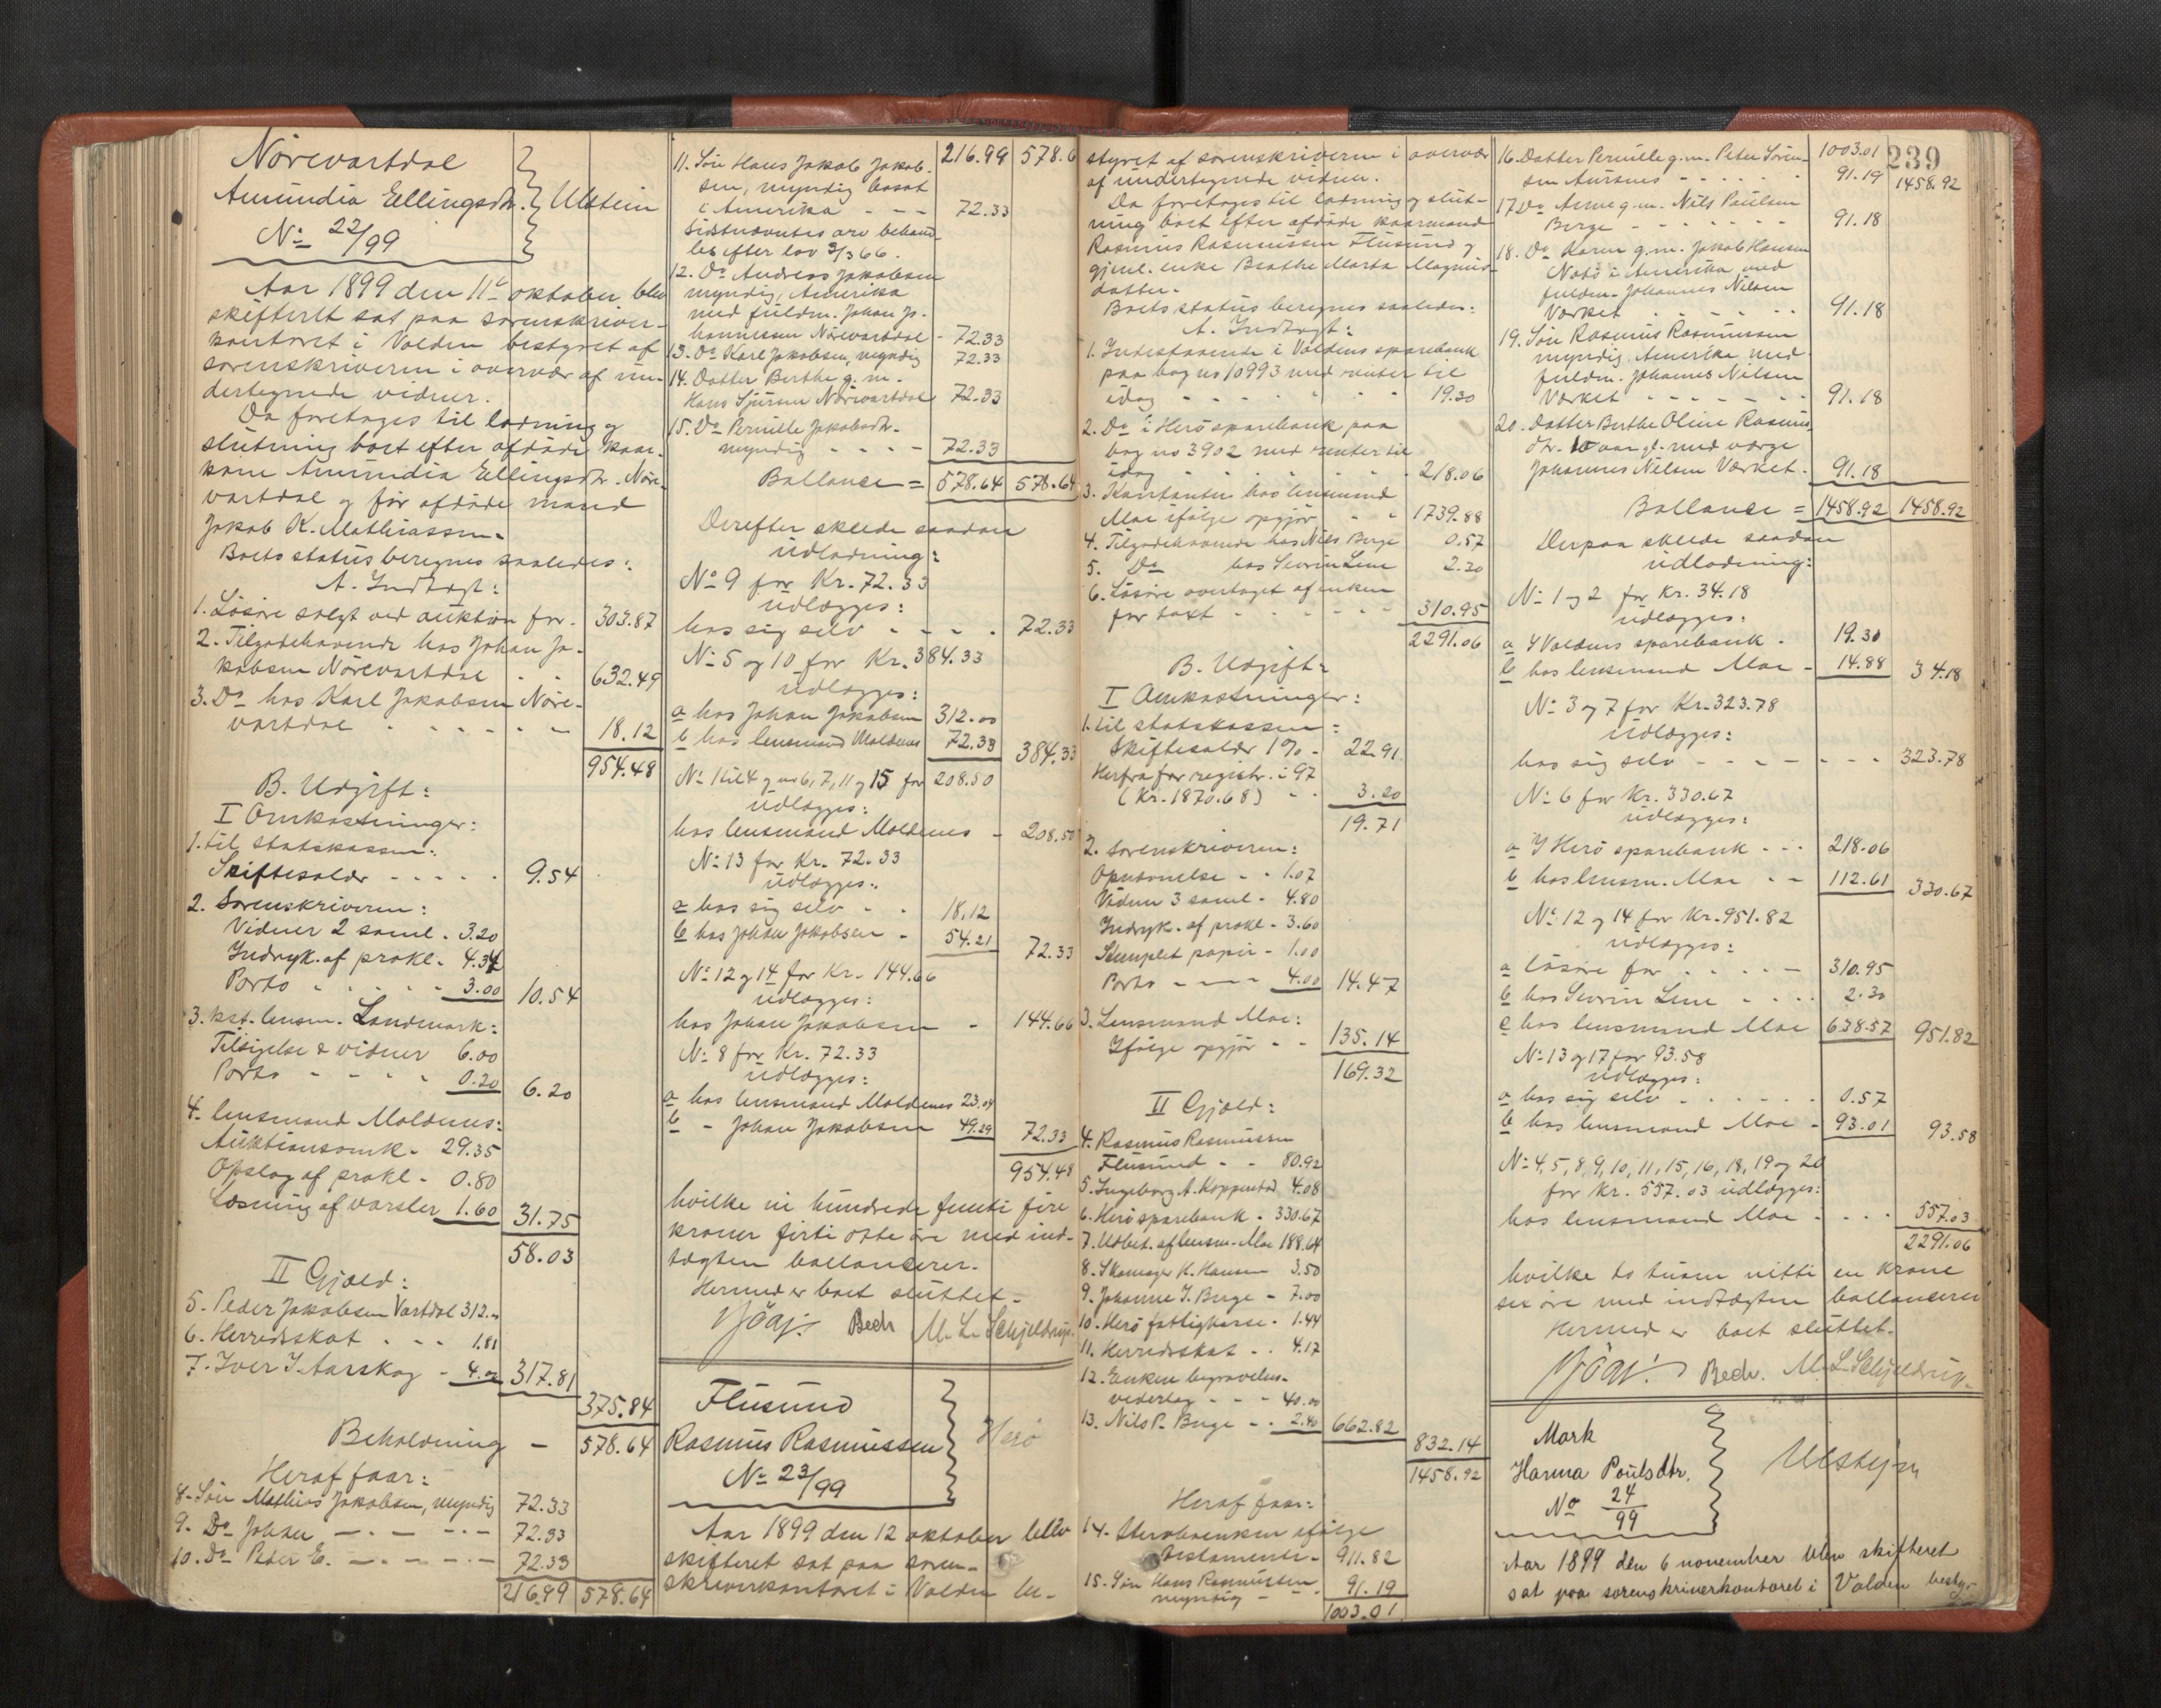 Nörevartdal
Amundia Ellingsdtr. Ulstein
No 22/99
Aar 1899 den 11te oktober blev
skifteret sat paa sorenskriver-
kontoret i Volden bestyret af
sorenskriveren i overvær af un-
dertegnede vidner.
Da foretoges til lodning og
slutning boet efter afdöde kaar-
kone Amundia Ellingsdtr. Nöre-
vartdal og för afdöde mand
Jakob K. Mathiassen.
Boets status beregnes saaledes:
A. Indtægt:
1. Lösöre solgt ved auktion for - 303.87
2. Tilgodehavende hos Johan Ja-
kobsen Nörevartdal - - 632.49
3. Do hos Karl Jakobsen Nöre-
vartdal - - - - - 18.12
954.48
B. Udgift:
I Omkostninger:
1. til statskassen:
Skiftesaldr - - - - - 9.54
2. Sorenskriveren:
Vidner 2 saml. 3.20
Indryk. af prokl. 4.34
Porto - - - - 3.00 10.54
3. kst. lensm. Landmark:
Tilsigelse & vidner 6.00
Porto - - - - 0.20 6.20
4. lensmand Moldenes:
Auktionsomk. 29.35
Opslag af prokl. - 0.80
Læsning af varsler 1.60 31.75
58.03
II Gjæld:
5. Peder Jakobsen Vartdal 312.00
6. Herredsskat - - - 1.81
7. Iver I. Aarskog - 4.00 317.81
375.84
Beholdning - 578.64
Heraf faar:
8. Sön Mathias Jakobsen, myndig 72.33
9. Do Johan - - - - 72.33
10. Do Peder E. - - - - 72.33
216.99 578.64
216.99 578.6
11. Sön Hans Jakob Jakob-
sen, myndig bosat
i Amerika - - - 72.33
Sidstnævntes arv behand-
les efter lov 3/3 66.
12. Do Andreas Jakobsen
myndig, Amerika
med fuldm. Johan Jo-
hannessen Nörevartdal - 72.33
13. Do Karl Jakobsen, myndig 72.33
14. Datter Berthe g. m.
Hans Sjursen Nörevartdal 72.33
15. Do Pernille Jakobsdtr.
myndig - - - - 72.33
Ballance = 578.64 578.64
Derefter skeede saadan
udlodning:
No 9 for Kr. 72.33
udlægges:
hos sig selv - - - - 72.33
No 5 og 10 for Kr. 384.33
udlægges:
a hos Johan Jakobsen 312.00
b hos lensmand Moldenes 72.33 384.33
No 1 til 4 og no 6, 7, 11 og 15 for 208.50
udlægges:
hos lensmand Moldenes - 208.50
No 13 for Kr. 72.33
udlægges:
a hos sig selv - - 18.12
b hos Johan Jakobsen - 54.21 72.33
No 12 og 14 for Kr. 144.66
udlægges:
hos Johan Jakobsen - 144.66
No 8 for Kr. 72.33
udlægges:
a hos lensmand Moldenes 23.04
b - Johan Jakobsen 49.29 72.33
954.48
hvilke ni hundrede femti fire
kroner firti otte öre med ind-
tægten ballancerer.
Hermed er boet sluttet.
Bech M. L. Schjeldrup.
Flusund
Rasmus Rasmussen Herö
No 23/99
Aar 1899 den 12 oktober blev
skifteret sat paa soren-
skriverkontoret i Volden be-
239
styret af sorenskriveren i overvær
af undertegnede vidner.
Da foretoges til lodning og slut-
ning boet efter afdöde kaarmand
Rasmus Rasmussen Flusund og
gjenl. enke Berthe Marta Magnus-
datter.
Boets status beregnes saaledes:
A. Indtægt:
1. Indestaaende i Voldens sparebank
paa bog no 10993 med renter til
idag - - - - - - 19.30
2. Do i Herö sparebank paa
bog no 3902 med renter til
idag - - - - - - 218.06
3. Kontanter hos lensmand
Moe ifölge opgjör - - 1739.88
4. Tilgodehavende hos Nils Berge 0.57
5. Do hos Severin Lene 2.30
6. Lösöre overtaget af enken
for taxt - - - - - - 310.95
2291.06
B. Udgift:
I Omkostninger:
1. til statskassen:
Skiftesaldr 1% - 22.91
Herfra for registr. i 97
(Kr. 1870.68) - - 3.20
19.71
2. Sorenskriveren:
Opnævnelse - - 1.07
Vidner 3 saml. - 4.80
Indryk. af prokl. - 3.60
Stemplet papir - 1.00
Porto - - - 4.00 14.47
3. Lensmand Moe:
Ifölge opgjör - - 135.14
169.32
II Gjæld:
4. Rasmus Rasmussen
Flusund - - 80.92
5. Ingeborg A. Koppenstad 4.08
6. Herö sparebank - 330.67
7. Udbet. af lensm. Moe 188.64
8. Skomager K. Hansen 3.50
9. Johanne I. Berge - 7.00
10. Herö fattigkasse - 1.44
11. Herredsskat - - 4.17
12. Enken begravelses-
vederlag - - - 40.00
13. Nils P. Berge - - 2.40 662.82
832.14
1458.92
Heraf faar:
14. Stervboenken ifölge
testamente - 911.82
15. Sön Hans Rasmussen
myndig - - 91.19
1003.01
1003.01
1458.92
16. Datter Pernille g.m. Peter Sören-
sen Aursnes - - - - - 91.19
17. Do Anne g.m. Nils Paulsen
Berge - - - - - 91.18
18. Do Karen g.m. Jakob Hansen
Notö i Amerika med
fuldm. Johannes Nilsen
Værket - - - - - 91.18
19. Sön Rasmus Rasmussen
myndig, Amerika, med
fuldm. Johannes Nilsen
Værket - - - - - 91.18
20. Datter Berthe Oline Rasmus-
dtr. 10 aar gl. med værge
Johannes Nilsen Værket - 91.18
Ballance = 1458.92 1458.92
Derpaa skeede saadan
udlodning:
No 1 og 2 for Kr. 34.18
udlægges:
a I Voldens sparebank - 19.30
b hos lensmand Moe - 14.88 34.18
No 3 og 7 for Kr. 323.78
udlægges:
hos sig selv - - - - - - 323.78
No 6 for Kr. 330.67
udlægges:
a I Herö sparebank - - - 218.06
b hos lensm. Moe - - 112.61 330.67
No 12 og 14 for Kr. 951.82
udlægges:
a lösöre for - - - - - 310.95
b hos Severin Lene - - - 2.30
c hos lensmand Moe 638.57 951.82
No 13 og 17 for 93.58
udlægges:
a hos sig selv - - - - - 0.57
b hos lensmand Moe - 93.01 93.58
No 4, 5, 8, 9, 10, 11, 15, 16, 18, 19 og 20
for Kr. 557.03 udlægges:
hos lensmand Moe - - - - 557.03
2291.06
hvilke to tusen nitti en krone
sex öre med indtægten ballancerer
Hermed er boet sluttet.
Bech. M. L. Schjeldrup.
Mork
Hanna Poulsdtr. Ulstejn
No 24/99
Aar 1899 den 6 november blev skifteret
sat paa sorenskriverkontoret i Volden besty-